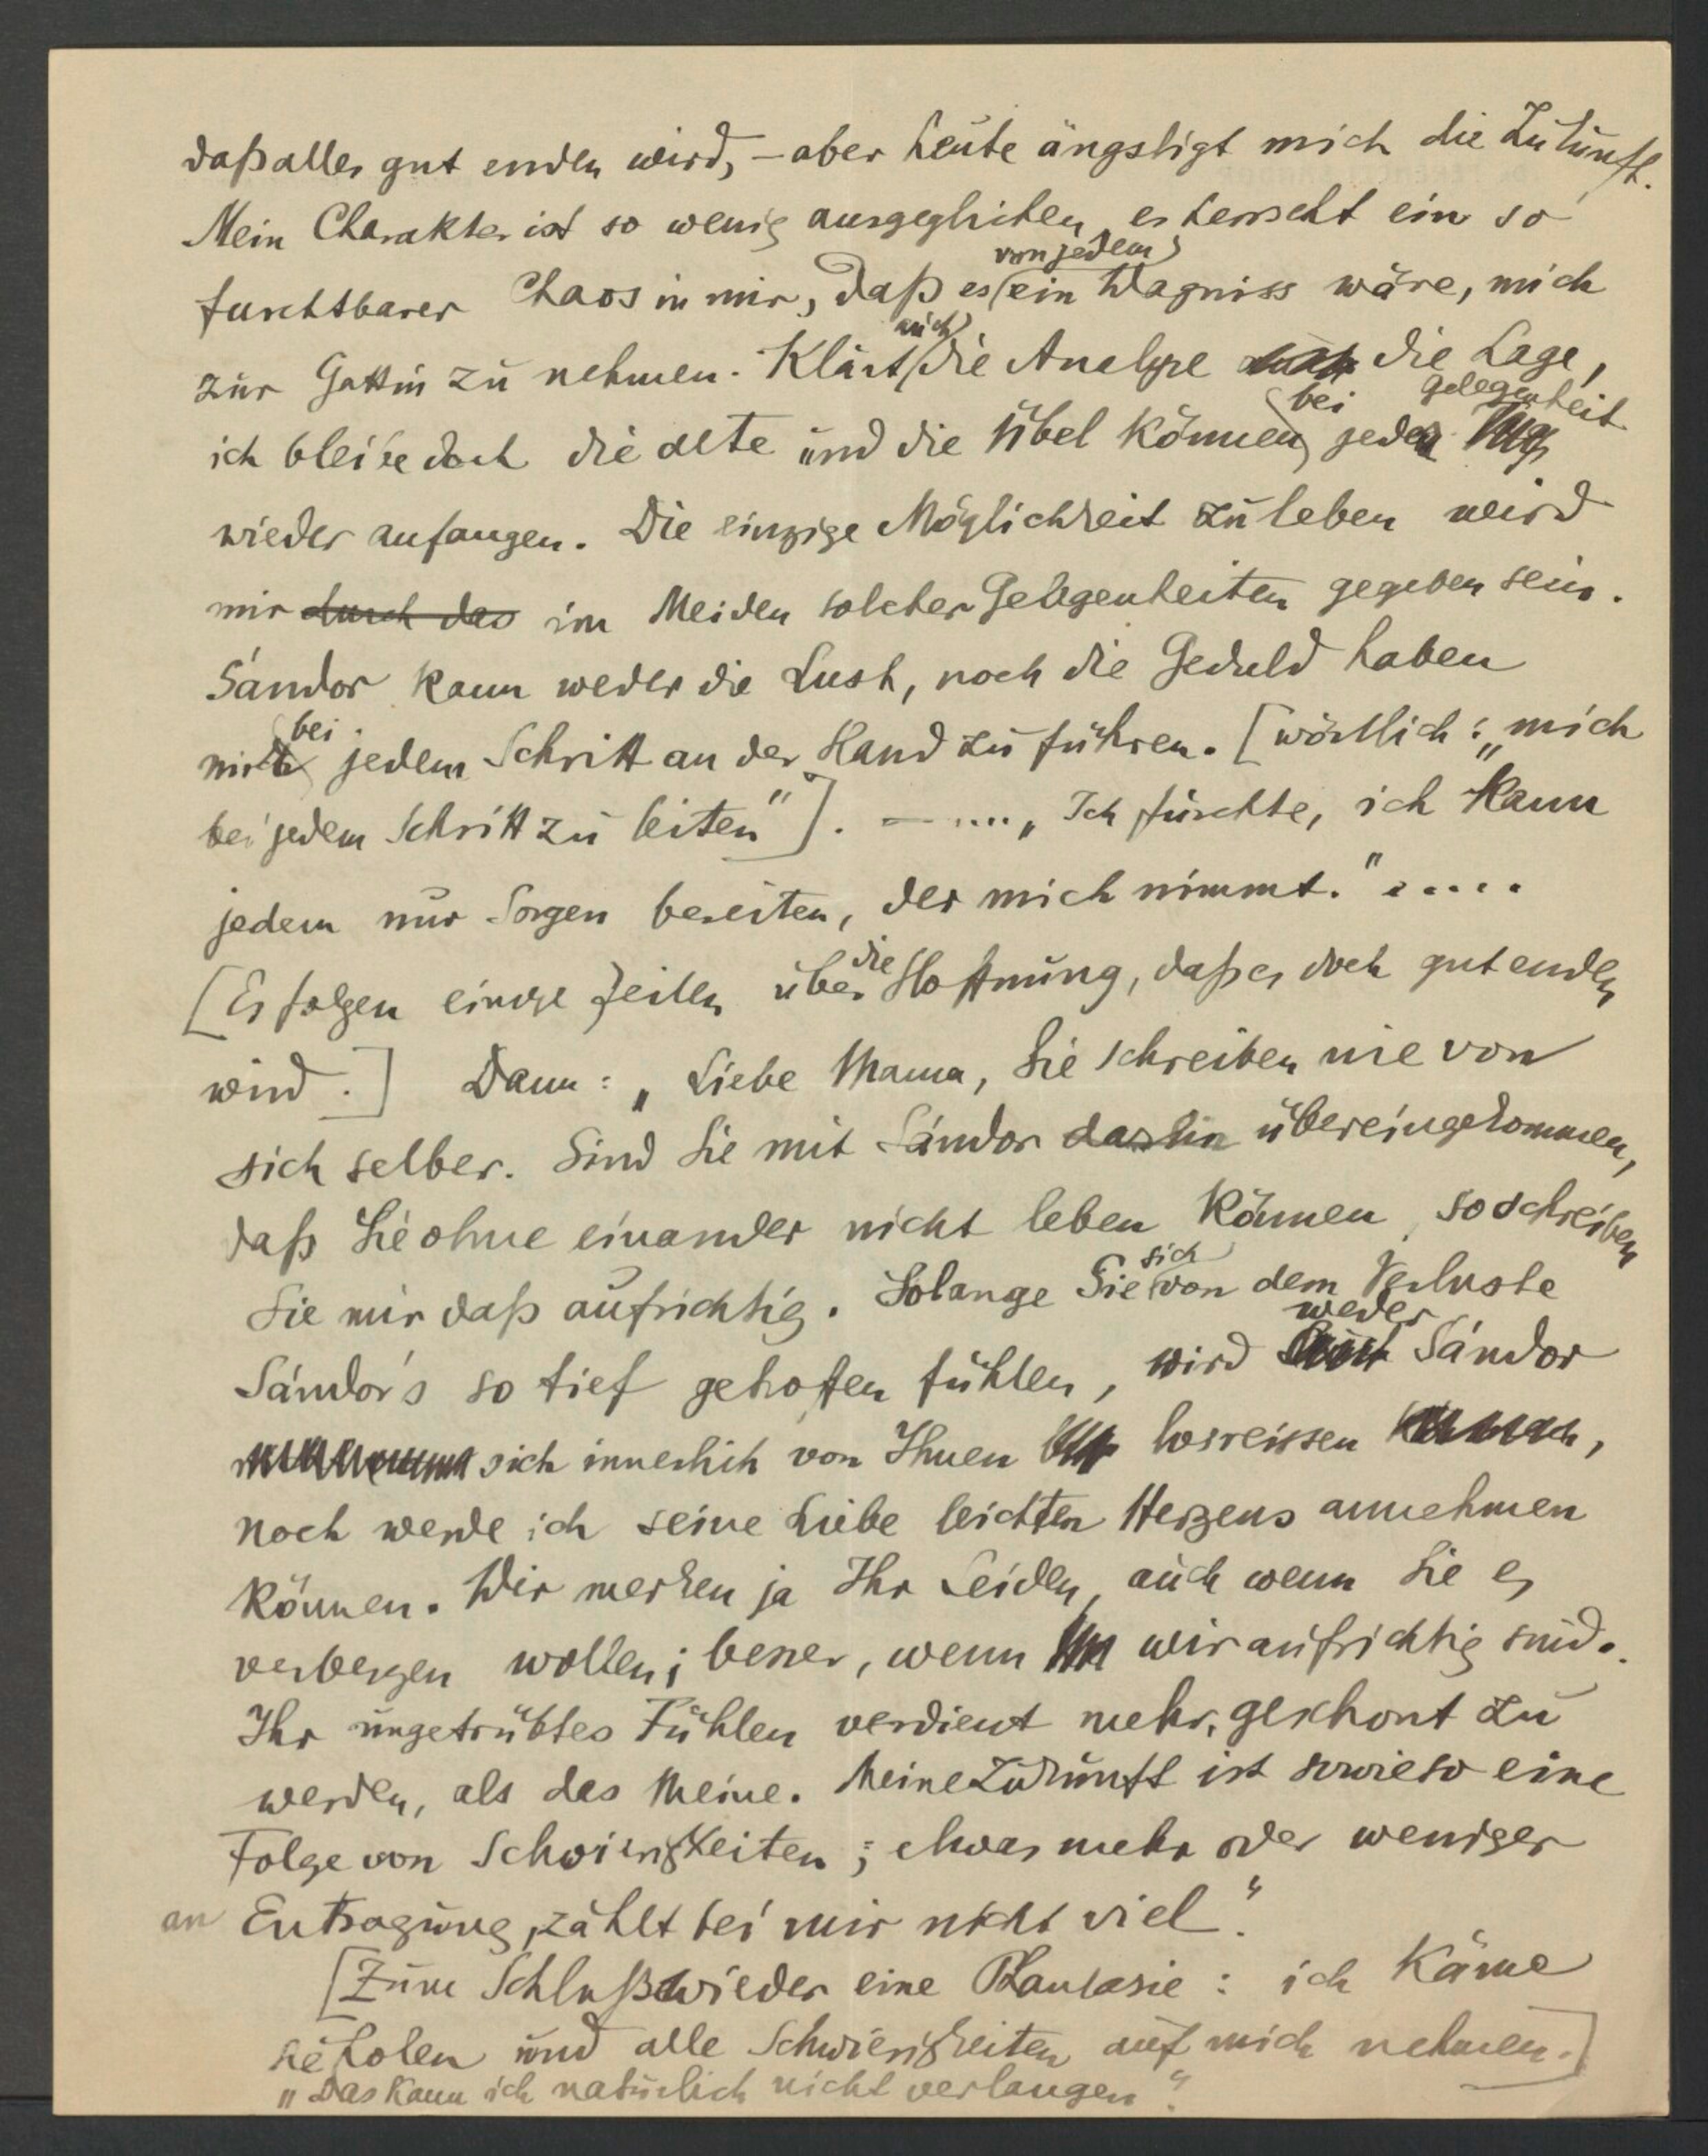 daß alles gut enden wird, – aber heute ängstigt mich die Zukunft.
Mein Charakter ist so wenig ausgeglichen, es herrscht ein so
von jedem
furchtbares Chaos in mir, daß es ein Wagniss wäre, mich
auch
zur Gattin zu nehmen. Klärt die Analyse die Lage,
bei Gelegenheit
ich bleibe doch die alte und die Übel können jeder
wieder anfangen. Die einzige Möglichkeit zu leben wird
mir durch das im Meiden solcher Gelegenheiten gegeben sein.
Sándor kann weder die Lust, noch die Geduld haben
bei
mich jedem Schritt an der Hand zu führen. [wörtlich: „mich
bei jedem Schritt zu leiten"]. – .... „Ich fürchte, ich kann
jedem nur Sorgen bereiten, der mich nimmt." .....
die
[Es folgen einige Zeilen über Hoffnung, daß es doch gut enden
wird.] Dann: „Liebe Mama, Sie schreiben nie von
sich selber. Sind Sie mit Sándor darin übereingekommen,
daß Sie ohne einander nicht leben können, so schreiben
sich
Sie mir daß aufrichtig. Solange Sie von dem Verluste
weder
Sándor's so tief getroffen fühlen, wird Sándor
sich innerlich von Ihnen losreissen,
noch werde ich seine Liebe leichten Herzens annehmen
können. Wir merken ja Ihr Leiden, auch wenn Sie es
verbergen wollen; besser, wenn wir aufrichtig sind.
Ihr ungetrübtes Fühlen verdient mehr, geschont zu
werden, als das Meine. Meine Zukunft ist sowieso eine
Folge von Schwierigkeiten; etwas mehr oder weniger
an Entsagung, zählt bei mir nicht viel."
[Zum Schluß wieder eine Phantasie: ich käme
sie holen und alle Schwierigkeiten auf mich nehmen.]
„Das kann ich natürlich nicht verlangen".